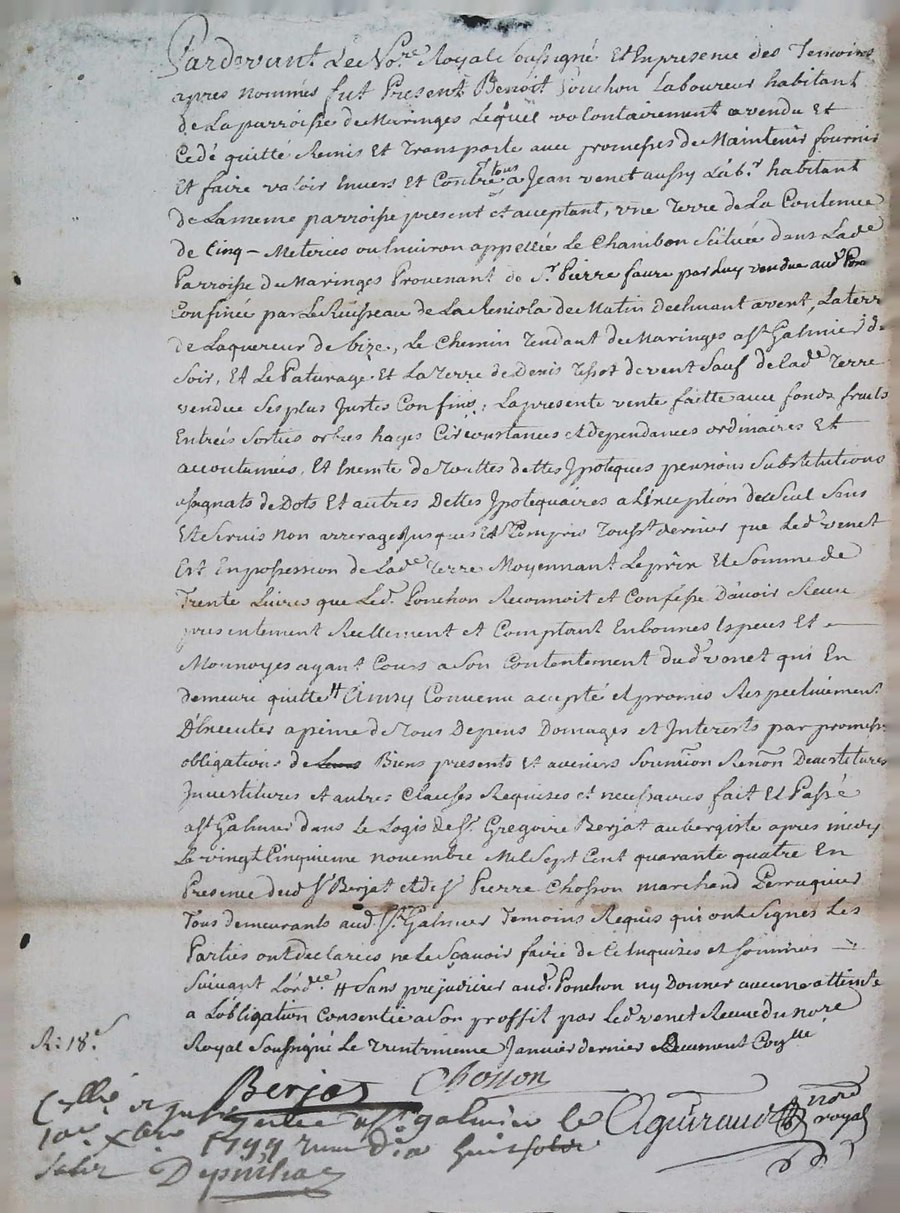 Pardevant Le No.re Royal Soussigné Et En presence des Temoins
apres nommés fut Present Benoit Ponchon Laboureur habitant
de La parroisse de Maringes Lequel volontairement a vendu et
Cedé quitté Remis Et Transporté avec promesses de Maintenir fournir
Et faire valoir Envers Et Contre tous a Jean venet aussy Lab.r habitant
de La meme parroisse present et aceptant, une Terre de La Contenue
de Cinq - Meterées ou Environ appellée Le Chambon Scituée dans Lad.e
Parroisse de Maringes Provenant de S.r Pierre faure par Luy vendue aud.
Confinée par Le Ruisseau de La de Matin vent, La terre
de Laquereur de bize, Le Chemin Tendant de Maringes a S.t Galmier de
Soir, Et Le Paturage Et La Terre de Denis de vent Sauf de Lad.e Terre
vendue Ses plus Justes Confins; La presente vente faitte avec fonds fruits
Entrées Sorties hayes Circonstances et dependances ordinaires Et
accoutumées, Et de Touttes dettes Ypoteques pensions Substitutions
assignats de Dots Et autres Dettes Ypotequaires a L'Exception de Seul Sens
Et Servis non arreragés Jusques Et Compris Touss.t dernier que Led. venet
Est En possession de Lad.e Terre Moyennant Le prix Et Somme de
Trente Livres que Led. Ponchon Reconnoit et Confesse D'avoir Receu
presentement Reellement et Comptant En bonnes Especes Et
Monnoyes ayant Cours a Son Contentement dud. venet qui En
demeure quitte # Ainsy Convenu accepté et promis Respectivement
D'Executer a peine de Tous Depens Domages et Interests par promesses
obligations de Leurs Biens presents Et avenirs Soumōn Renōn Devestitures
Investitures et autres Clauses Requises et necessaires fait Et Passé
a S.t Galmier dans Le Logis de S.r Gregoire Berjat aubergiste apres midy
Le vingt Cinquieme novembre Mil Sept Cent quarante quatre En
Presence dud. S.r Berjat et de S.r Pierre Chosson marchand Perruquier
Tous demeurants aud. S.t Galmier Temoins Requis qui ont Signés Les
Parties ont declarées ne Le Sçavoir faire de Ce Enquizes et Sommées
Suivant L'ord.ce # Sans prejudicier aud. Ponchon ny Donner aucune atteinte
a L'obligation Consentie a Son proffit par Led. venet Receue du no.re
Royal Soussigné Le Janvier dernier
R: 18.s
Berjat Chosson
a S.t galmier le
no.re royal
1744